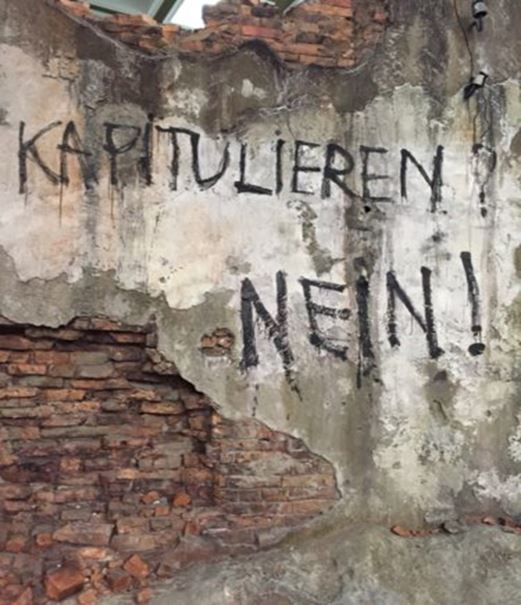 KAPITULIEREN?
NEIN!